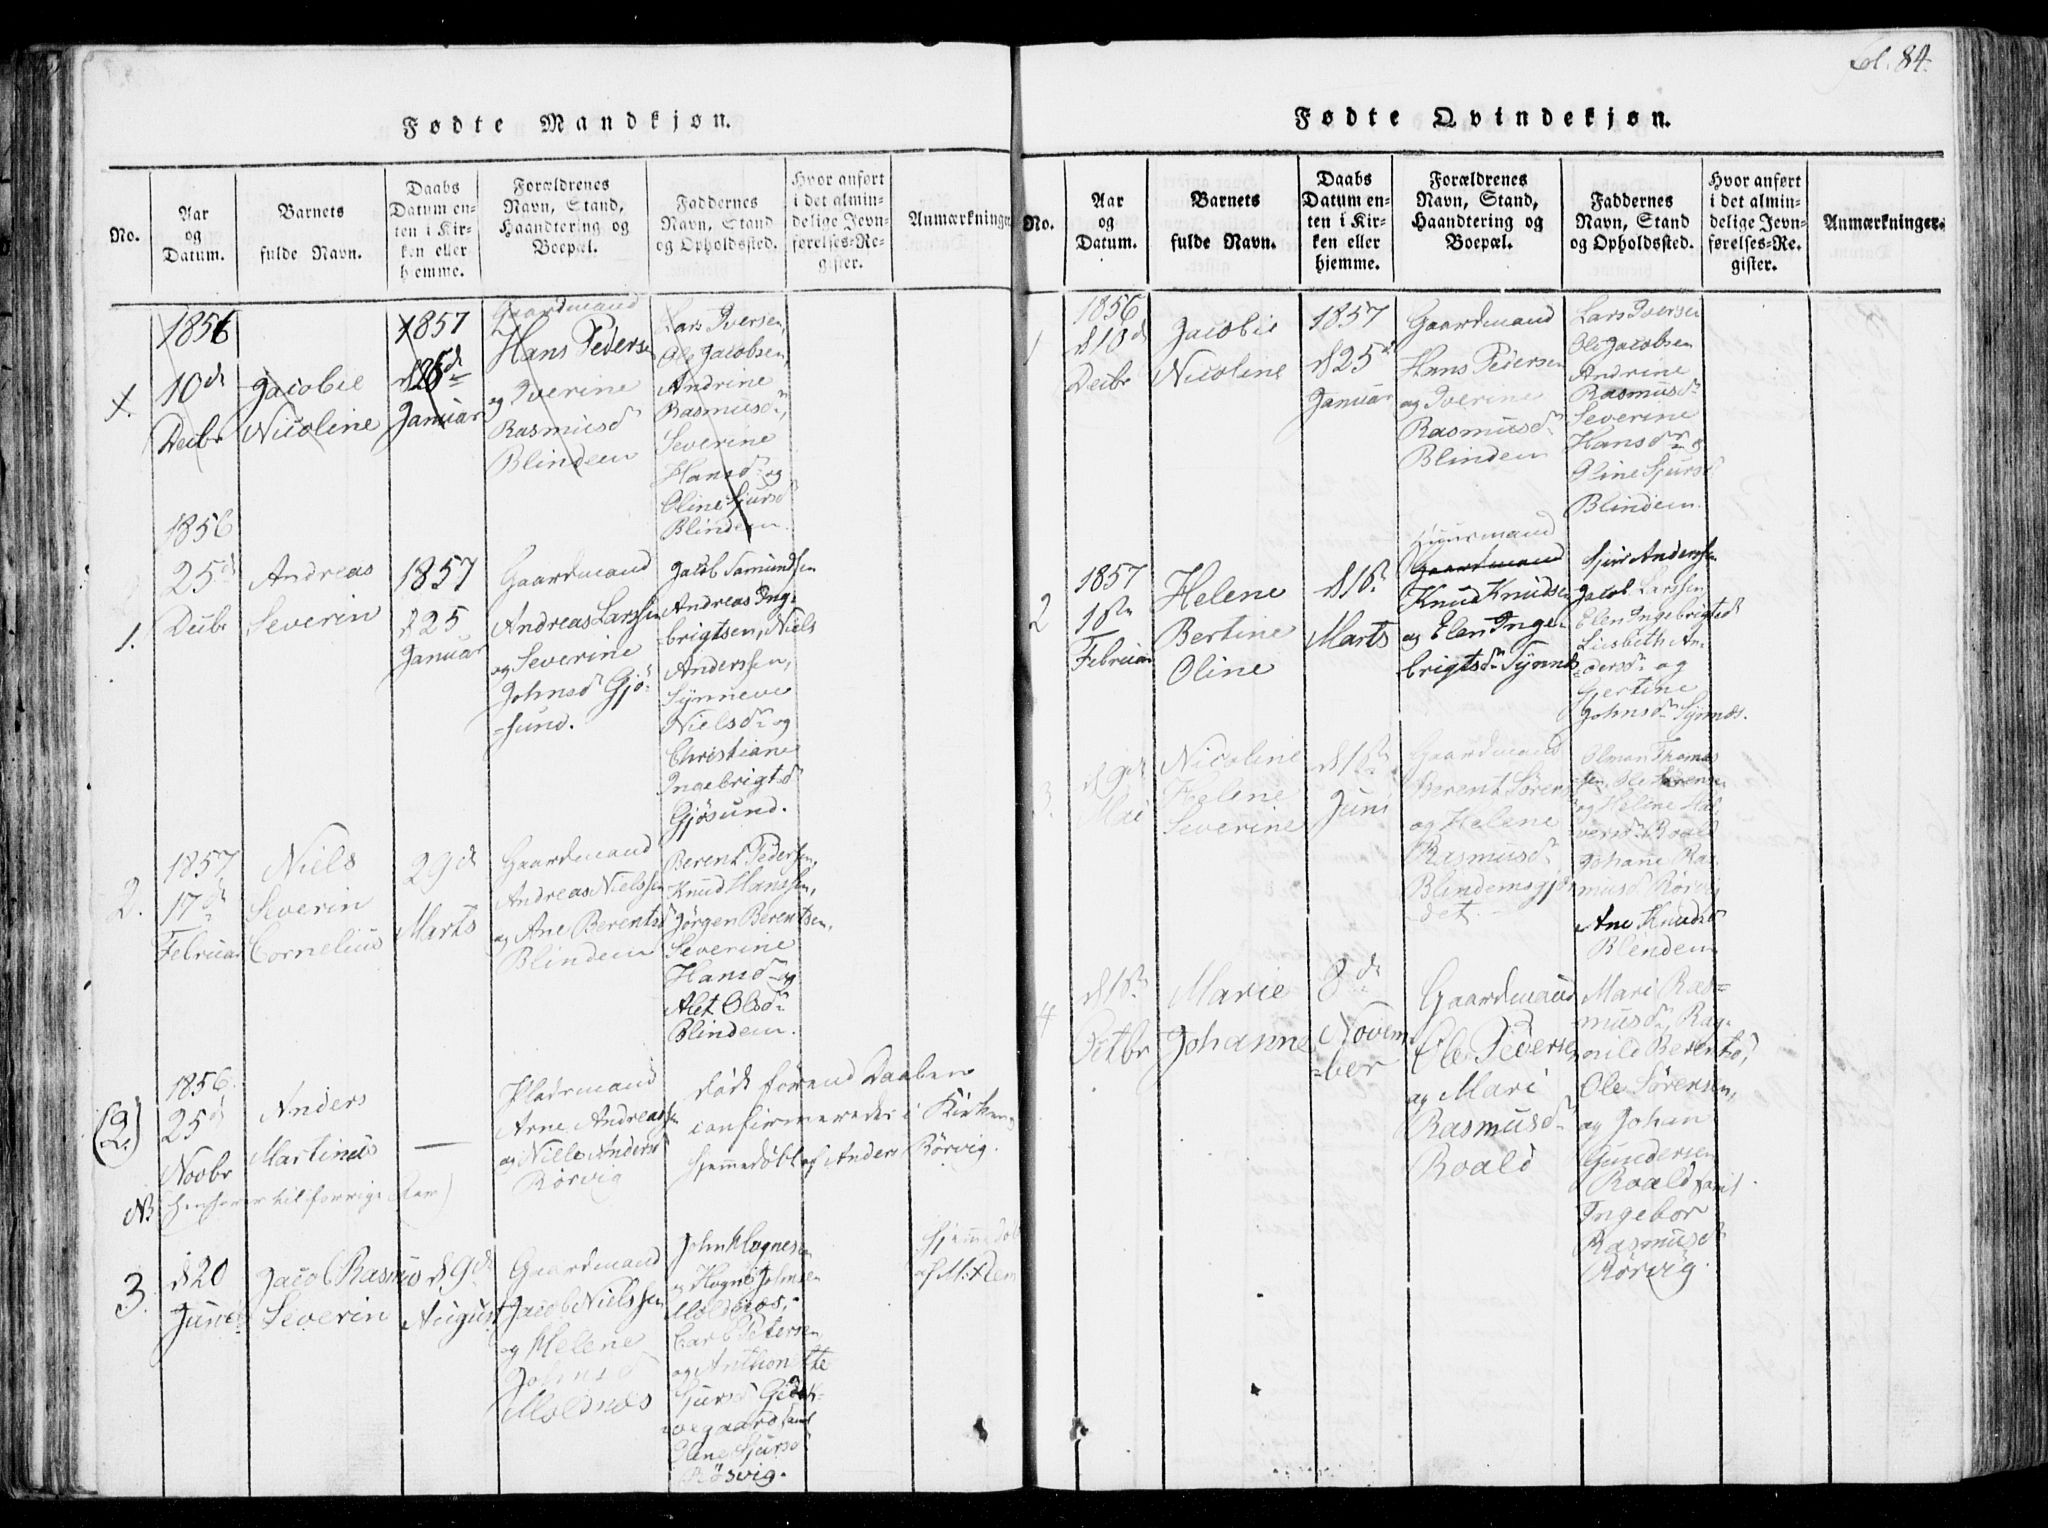 fol. 84.
Fødte Mandkjøn.
No.
Aar
og
Datum.
Barnets
fulde Navn.
Daabs
Datum en-
ten i Kir-
ken eller
hjemme.
Forældrenes
Navn, Stand,
Haandtering og
Boepæl.
Faddernes
Navn, Stand
og Opholdssted.
Hvor anført
i det almin-
delige Jevn-
førelses-Re-
gister.
Anmærkninger.
1856
10de
Decbr
Jacobie
Nicoline
1857
d 25de
Januar
Gaardmand
Hans Pedersen
og Iverine
Rasmusd
Blindem
Lars Iversen,
Ole Jacobsen,
Andrine
Rasmusdr,
Severine
Hansdr og
Oline Sjursd
Blindem.
1.
1856
25de
Decbr
Andreas
Severin
1857
d 25
Januar
Gaardmand
Andreas Larssen
og Severine
Johnsd Gjö-
-sund.
Jacob Samundsen
Andreas Ing-
-brigtsen, Niels
Anderssen,
Synneve
Nielsdr og
Christiane
Ingebrigtsd
Gjösund.
2.
1857
17de
Februar
Niels
Severin
Cornelius
29de
Marts
Gaardmand
Andreas Nielssen
og Ane Berentsd
Blindem
Berent Pedersen,
Knud Hanssen,
Jörgen Berentsen,
Severine
Hansd og
Alet Olsdr
Blindem.
(2.)
1856.
25de
Novbr
Anders
Martinus
—
Pladsmand
Arne Andreassen
og Nille Andersd
Rörvig
død förend Daaben
confirmeredes i Kirken,
hjemmedöbt af Anders Rörvig.
NB henhører til forrige Aar)
3.
d 20
Juni
Jacob Rasmus
Severin
d 9de
August
Gaardmand
Jacob Nielssen
og Helene
Johnsd
Moldnæs
John Hognesen
og Hogne Johnsen
Moldnæs,
Carl Petersen
og Anthonette
Sjursd Gidsk-
-oegaard samt
Elene Sjursd
Rösvig.
hjemmedöbt
af M: Klem
Fødte Qvindekjøn.
No.
Aar
og
Datum.
Barnets
fulde Navn.
Daabs
Datum en-
ten i Kir-
ken eller
hjemme.
Forældrenes
Navn, Stand,
Haandtering og
Boepæl.
Faddernes
Navn, Stand
og Opholdssted.
Hvor anført
i det almin-
delige Jevn-
førelses-Re-
gister.
Anmærkninger.
1
1856
d 10de
Decbr
Jacobie
Nicoline
1857
d 25de
Januar
Gaardmand
Hans Pedersen
og Iverine
Rasmusdr
Blindem
Lars Iversen
Ole Jacobsen
Andrine
Rasmusdr
Severine
Hansdr og
Oline Sjursd
Blindem.
2
1857
18de
Februar
Helene
Bertine
Oline
d 18de
Marts
Huusmand
Gaardmand
Knud Knudsen
og Elen Inge-
brigtsdr Synnæs
Sjur Anderssen
Jacob Larssen
Elen Ingebrigtsd
Lisbeth An-
-dersdr og
Gjertine
Johnsdr Synnæs.
3.
d 9de
Mai
Nicoline
Helene
Severine
Juni
Gaardmand
Berent Sörensen
og Helene
Rasmusdr
Blindemsgjær
det.
Olman Thomas
sen, Ole Sörensen
og Helene Hal
versdr Roald
Johane Ras
musd Rörvig
Ane Knudsd
Blendem
4
Octbr
Marie
Johanne
8de
Novem
-ber
Gaardmand
Ole Pedersen
og Mari
Rasmusdr
Roald
Mari Ras-
musdr, Rag-
nild Berentsd,
Ole Sörensen,
og Johan
Gundersen
Roald samt
Ingebor
Rasmusd
Rörvig.